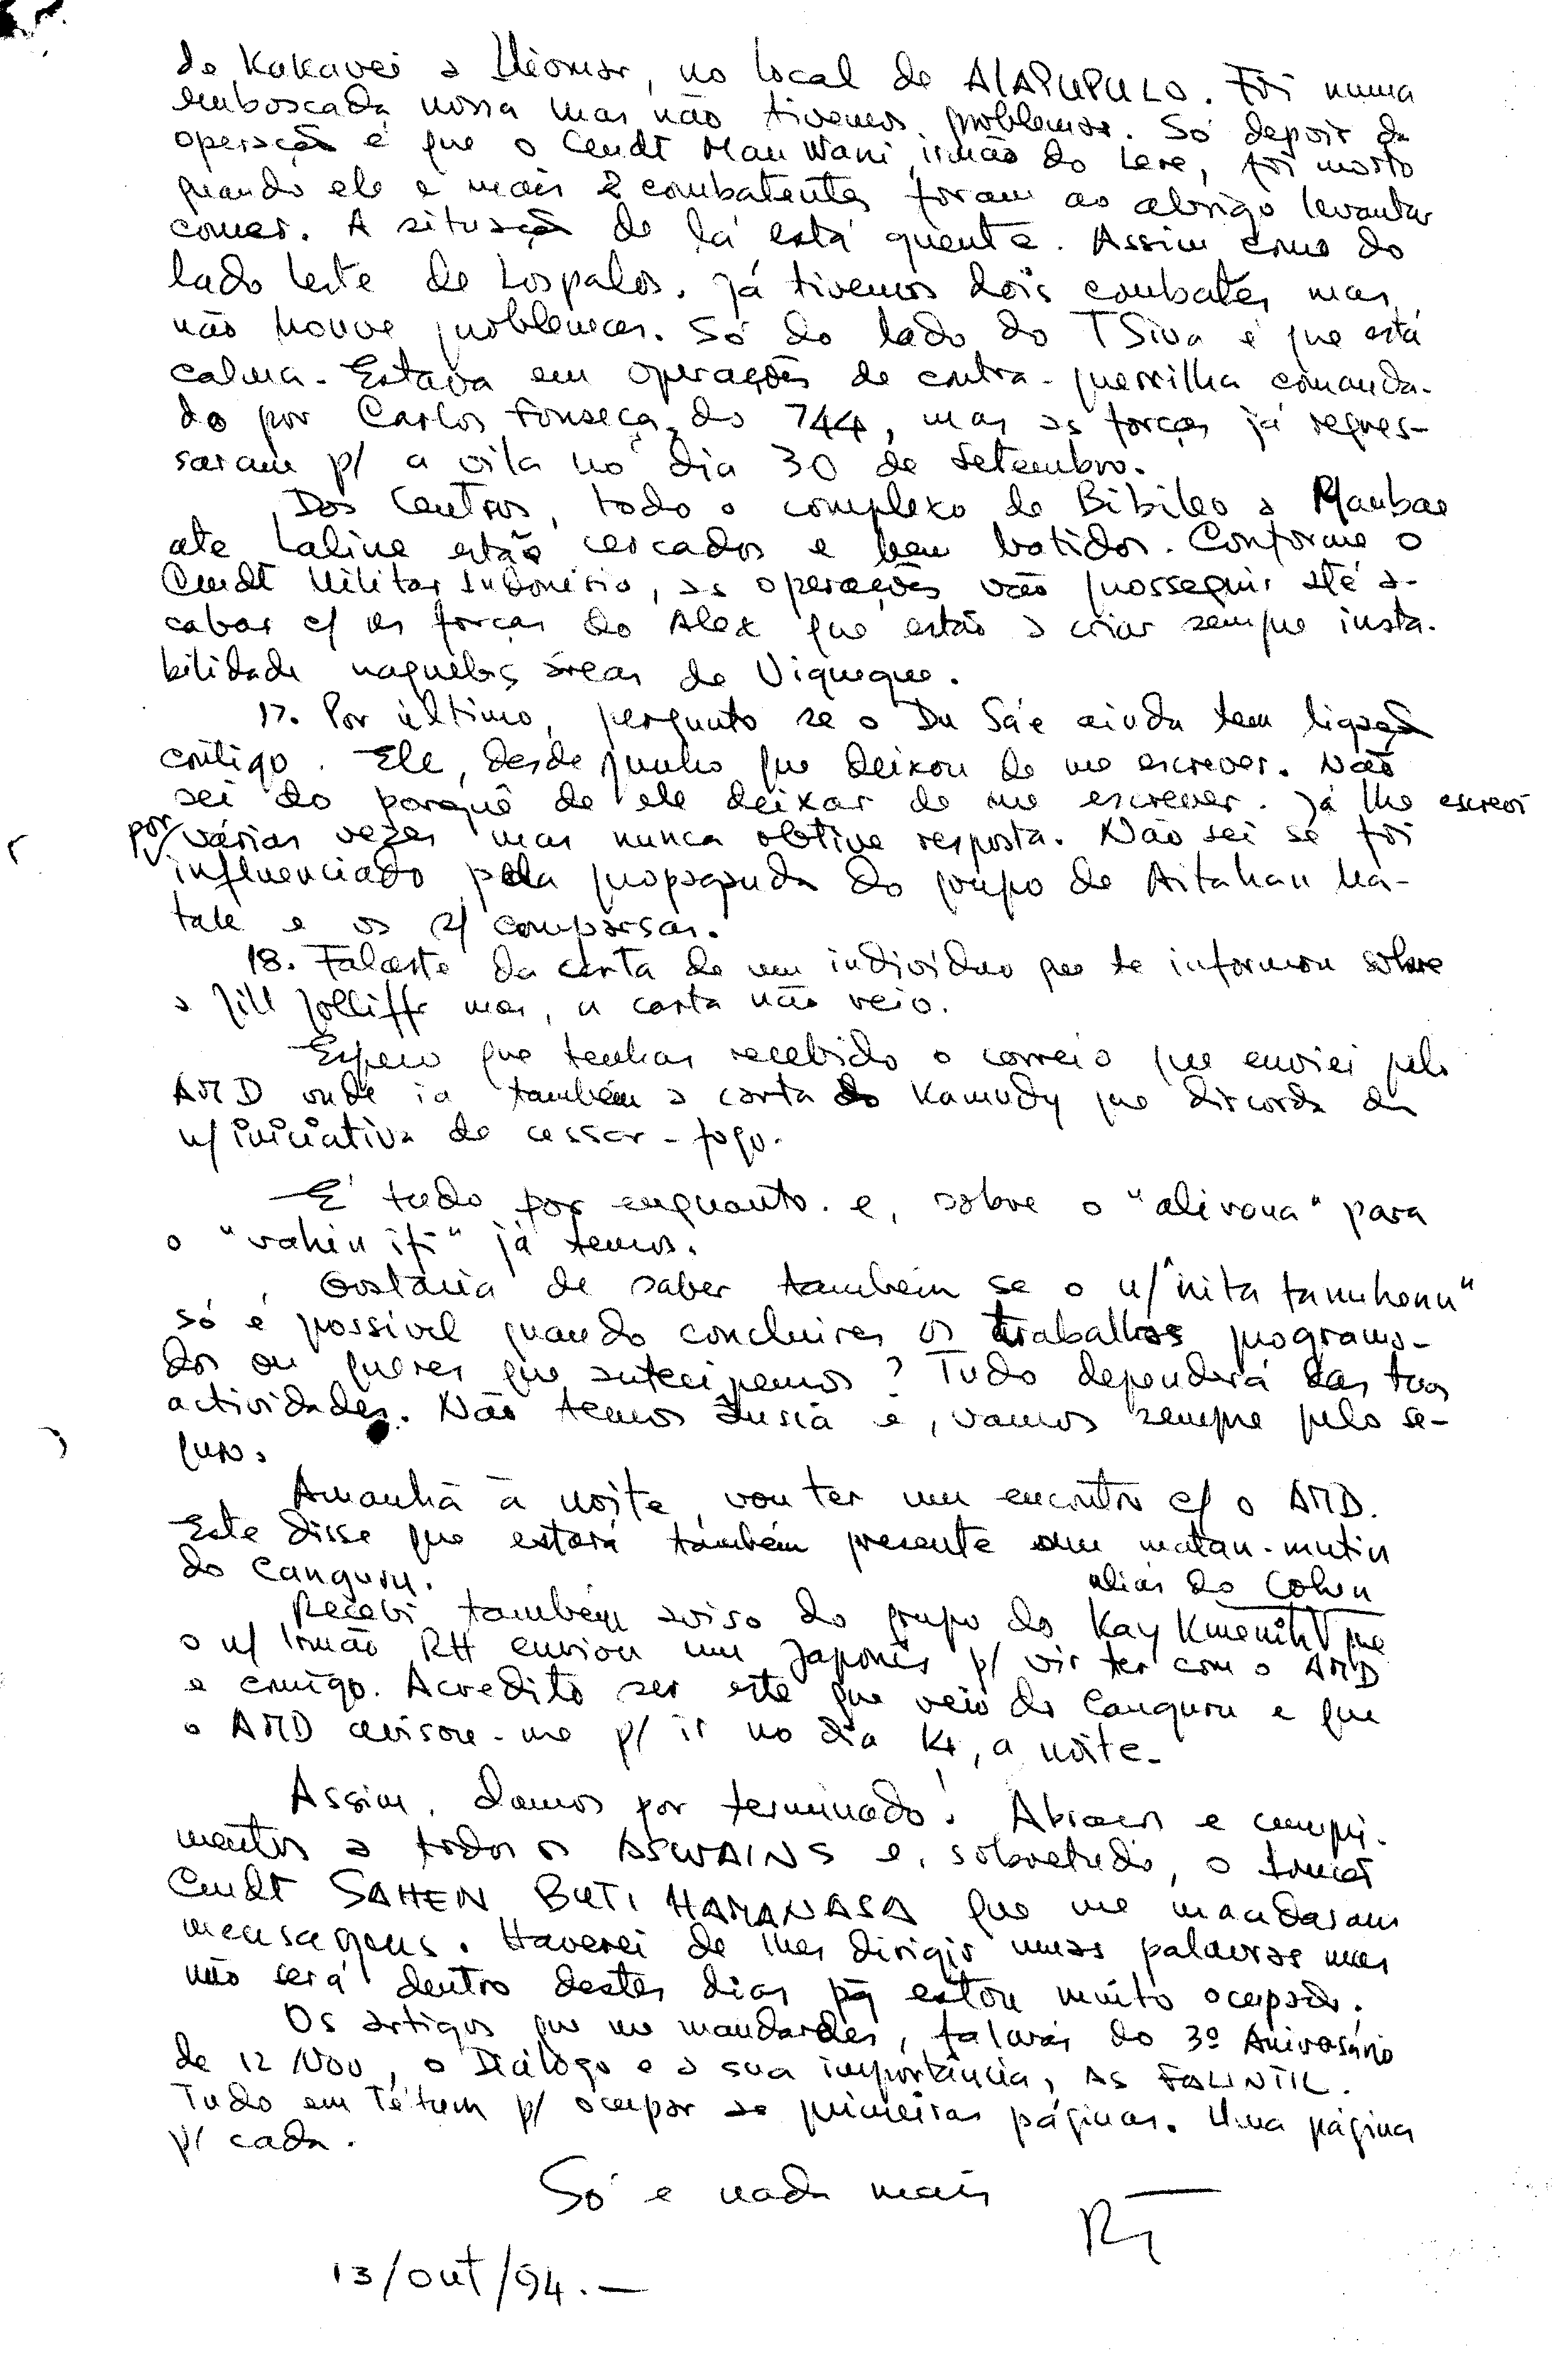 de Kakavei a Iliomar, no local de AIAPUPULO. Foi numa
emboscada nossa mas não tivemos problemas. Só depois da
operação é que o Cmdt Mau Wani, irmão do Lere, foi morto
quando ele e mais 2 combatentes foram ao abrigo levantar
comer. A situação de lá está quente. Assim como do
lado leste de Lospalos. Já tivemos dois combates mas,
não houve problemas. Só do lado do TSiva é que está
calma. Estava em operações de contra-guerrilha comanda-
do por Carlos Fonseca, do 744, mas as forças já regres-
saram p/ a vila no dia 30 de Setembro.
Dos Centros, todo o complexo de Bibileo a Maubae
ate Laline estão cercados e bem batidos. Conforme o
Cmdt Militar Indonésio, as operações vão prosseguir até a-
cabar c/ as forças do Alex que estão a criar sempre insta-
bilidade naquelas áreas de Viqueque.
17. Por último, pergunto se o Du Sáe ainda tem ligação
contigo. Ele, desde Junho que deixou de me escrever. Não
sei do porquê de ele deixar de me escrever. Já lhe escrevi
por várias vezes mas nunca obtive resposta. Não sei se foi
influenciado pela propaganda do grupo de Aitahan Ma-
tak e os s/ comparsas.
18. Falaste da carta de um indivíduo que te informou sobre
a Jill Jolliffe mas, a carta não veio.
Espero que tenhas recebido o correio que enviei pelo
AMD onde ia também a carta do Kamudy que discorda da
n/iniciativa de cessar-fogo.
É tudo por enquanto. e, sobre o "alivona" para
o "vahin ifi" já temos.
Gostaria de saber também se o n/"nita tanuhenu"
só é possível quando concluires os trabalhos programa-
dos ou queres que antecipemos? Tudo dependerá das tuas
actividades. Não temos ânsia e, vamos sempre pelo se-
guro.
Amanhã à noite, vou ter um encontro c/ o AMD.
Este disse que estará também presente um matan-mutin
do Canguru.
aliás do Cohen
Recebi também aviso do grupo do Kay Kmenihl que
o n/ Irmão RH enviou um Japonês p/ vir ter com o AMD
e comigo. Acredito ser este que veio do Canguru e que
o AMD avisou-me p/ ir no dia 14, a noite.
Assim, damos por terminado! Abraços e cumpri-
mentos a todos os ASWAINS e, sobretudo, o Irmão
Cmdt SAHEN BUTI HAMANASA que me mandaram
mensagens. Haverei de lhes dirigir umas palavras mas
não será dentro destes dias pq estou muito ocupado.
Os artigos que me mandardes, falarás do 3º Aniversário
de 12 Nov, o Diálogo e a sua importância, As FALINTIL.
Tudo em Tétum p/ ocupar as primeiras páginas. Uma página
p/ cada.
Só e nada mais
13/Out/94.—